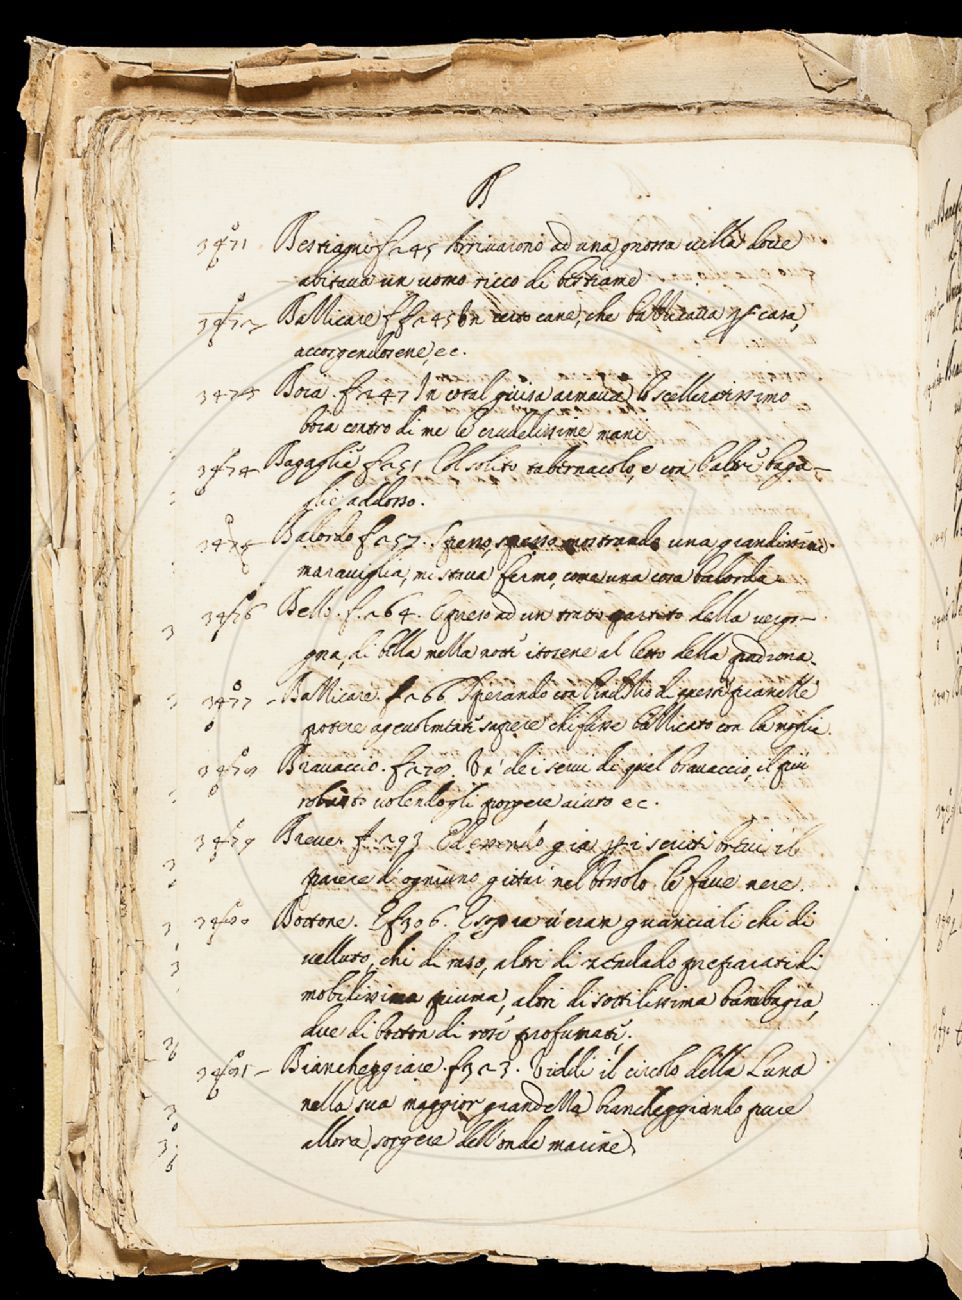 B
3471 Bestiame f 245 Arrivarono ad una grossa villa dove
abitava un uomo ricco di bestiame
3472 Batticare f 245 Un certo cane, che batticava p casa,
accorgendosene, ec.
Boia. f. 247 In cotal guisa armava lo scelleratissimo
boia contro di me le crudelissime mani
3474 Bagaglie f. 251 Col solito tabernacolo, e con l'altre baga-
glie addosso.
Balordo f. 257. spesso, spesso mostrando una grandissima
maraviglia, mi stava fermo, come una cosa balorda.
3476 Bello. f. 264. E preso ad un tratto partito della vergo-
gna, di bella mezza notte itosene al letto della padrona.
3477 Batticare. f. 266 Sperando con l'indizio di queste pianelle
potere agevolmente sapere chi fusse batticato con la moglie.
Bravaccio. f. 279. Un de i servi di quel bravaccio, il più
robusto volendogli porgere aiuto ec.
3479 Breve. f. 293 Ed essendo già p i scritti brevi il
parere di ogniuno gittar nel bossolo le fave nere.
Bottone. E f 306. E sopra v'eran guanciali chi di
velluto, chi di raso, altri di zendado preparati di
mobilissima piuma, altri di sottilissima bambagia,
due di botton di rose profumate.
Biancheggiare. f. 323. Viddi il circolo della Luna
nella sua maggior grandezza biancheggiando pure
allora, sorgere dell'onde marine